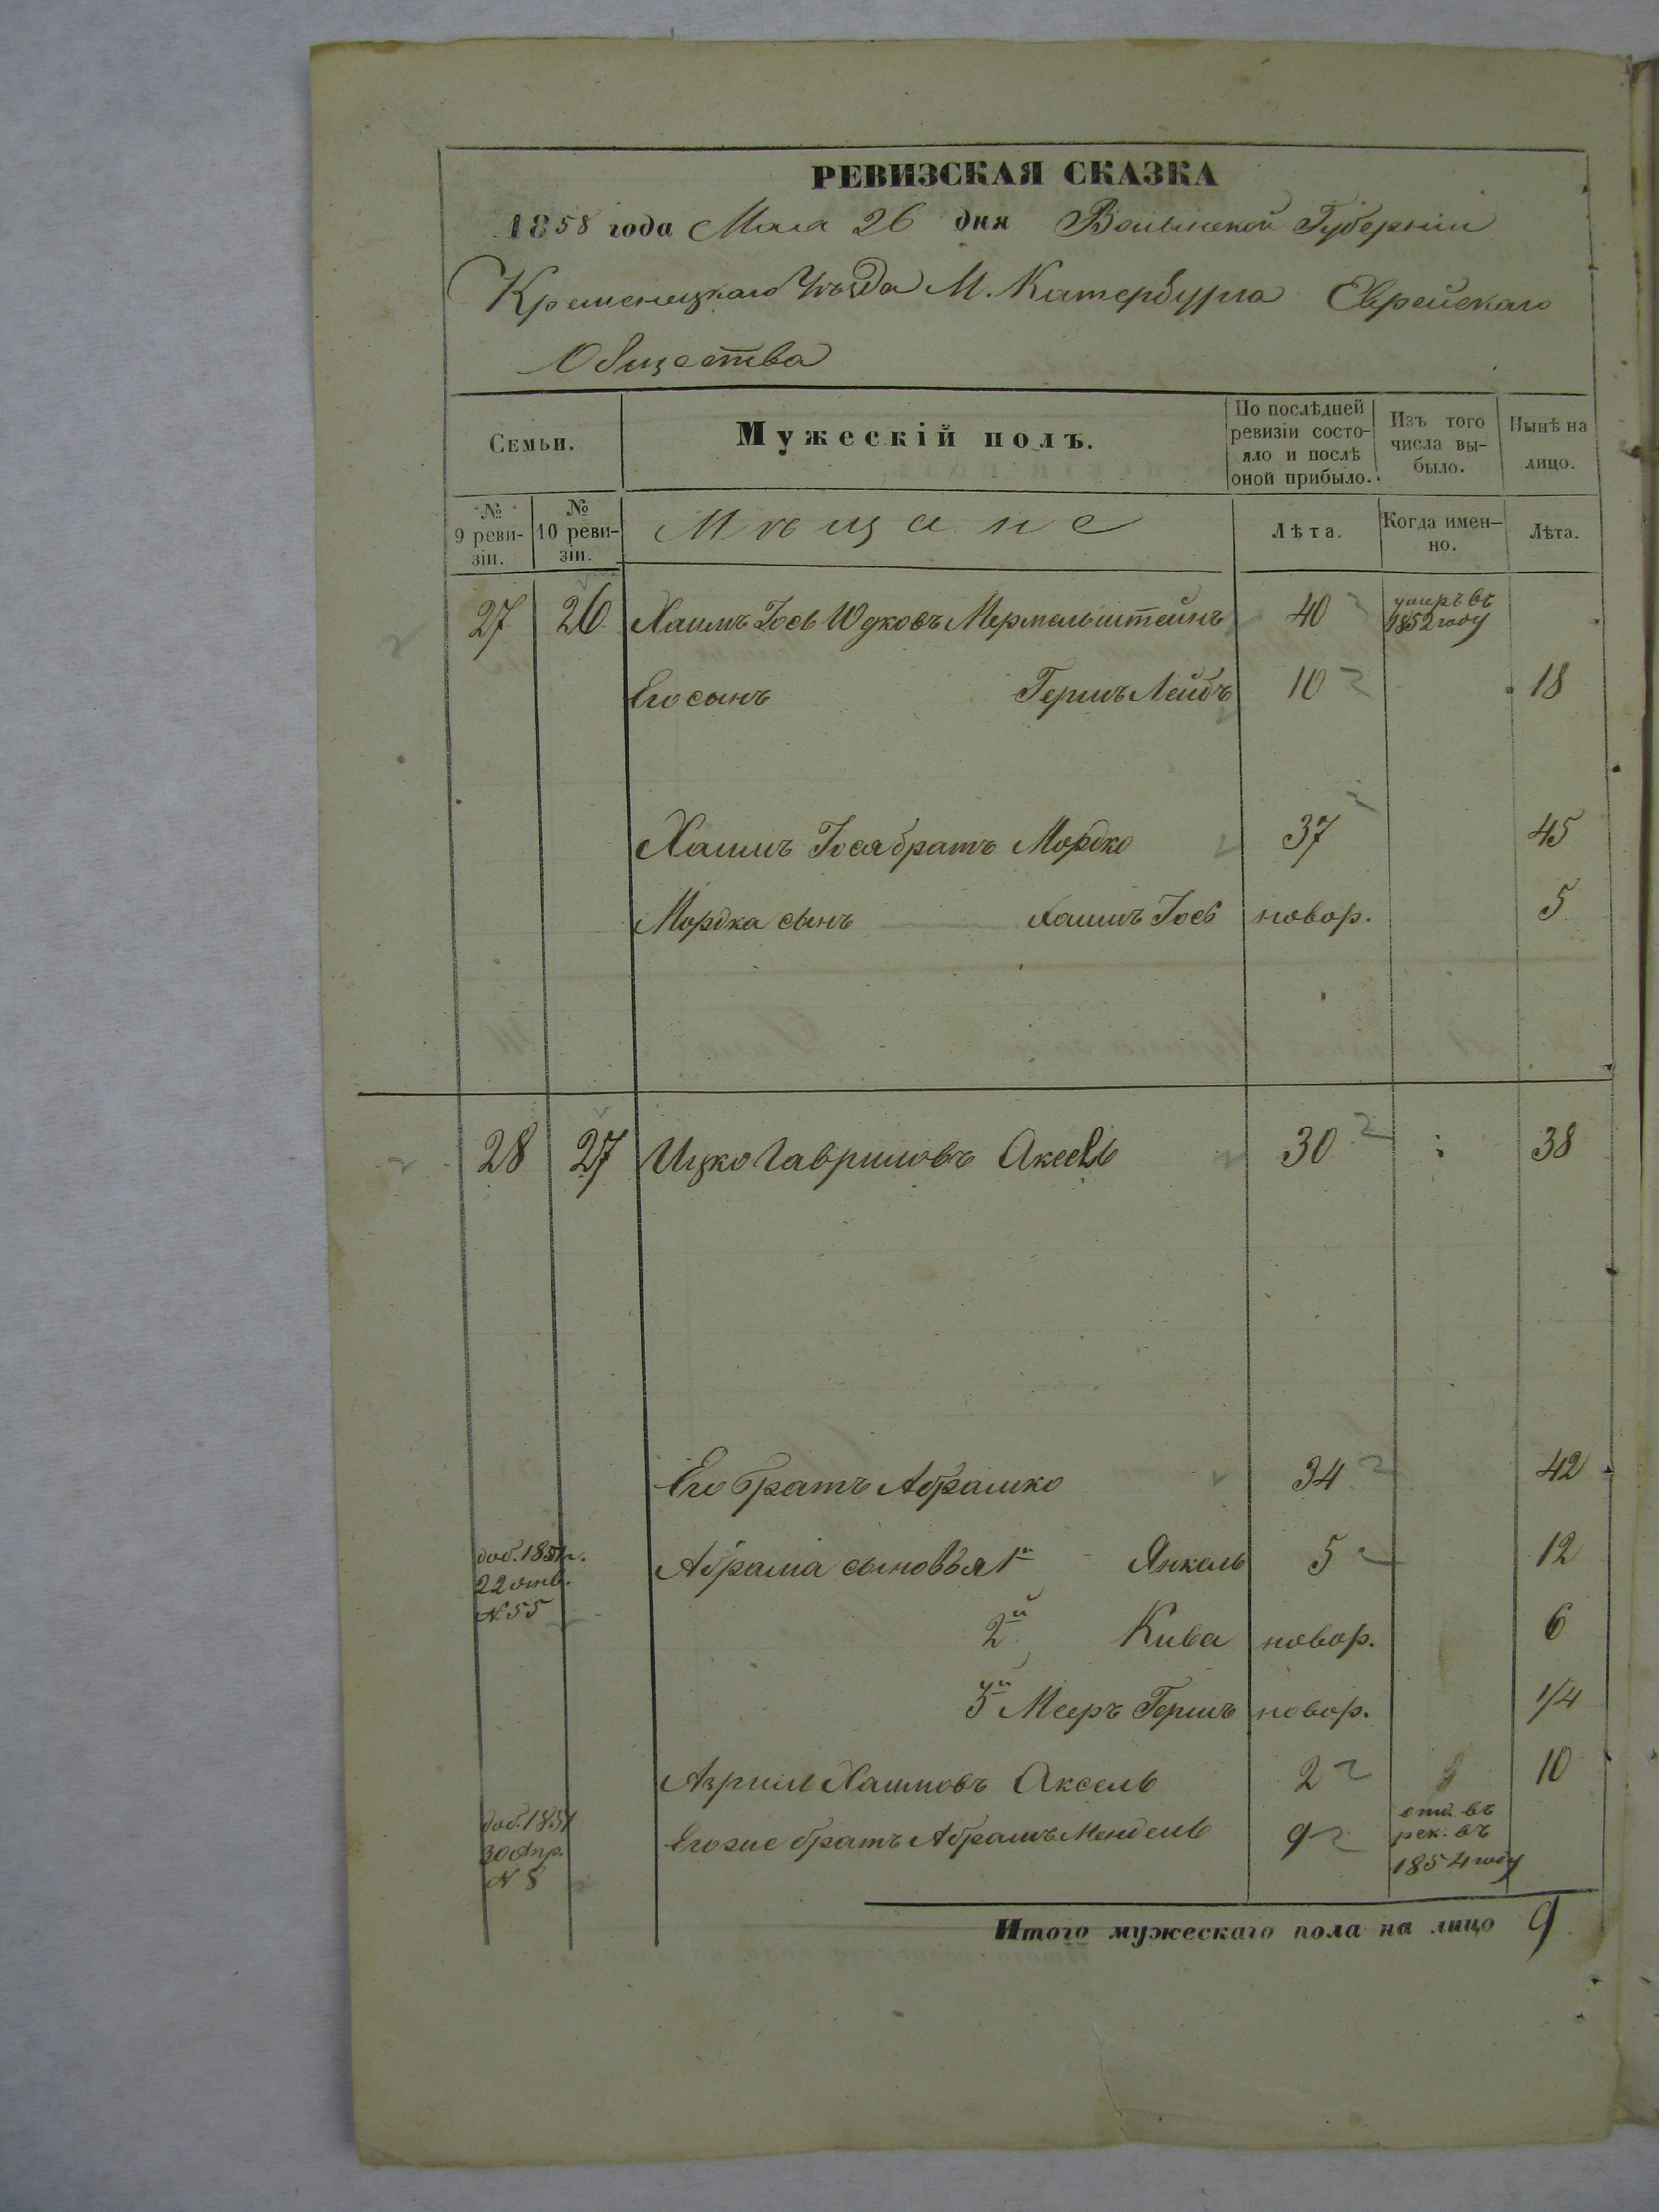 РЕВИЗСКАЯ СКАЗКА
1858 года Мая 26 дня Волынской Губернии
Кременецкаго Уѣзда М. Катербурга Еврейскаго
Общества
Семьи.
Мужескій полъ.
По послѣдней ревизіи состояло и послѣ оной прибыло.
Изъ того числа выбыло.
Нынѣ на лицо.
№ 9 ревизіи.
№ 10 ревизіи.
Мѣщане
Лѣта.
Когда именно.
Лѣта.
27 26 Хаимъ Іось Юдковъ Мермельштейнъ 40 умеръ въ 1852 году
Его сынъ Гершъ Лейбъ 10 18
Хаимъ Іося братъ Мордко 37 45
Мордка сынъ Хаимъ Іось новор. 5
28 27 Ицко Гавриловъ Аксель 30 38
Его братъ Абрамко 34 42
доб. 1851 г.
22
№ 55
Абрама сыновья 1й Янкель 5 12
2й Кива новор. 6
3й Мееръ Гершъ новор. 1/4
Азриль Хаимовъ Аксель 2 10
доб. 1851
30 Апр.
№ 8
Его же братъ Абрамъ Мендель 9 отд. въ рек. въ 1854 году
Итого мужескаго пола на лицо 9